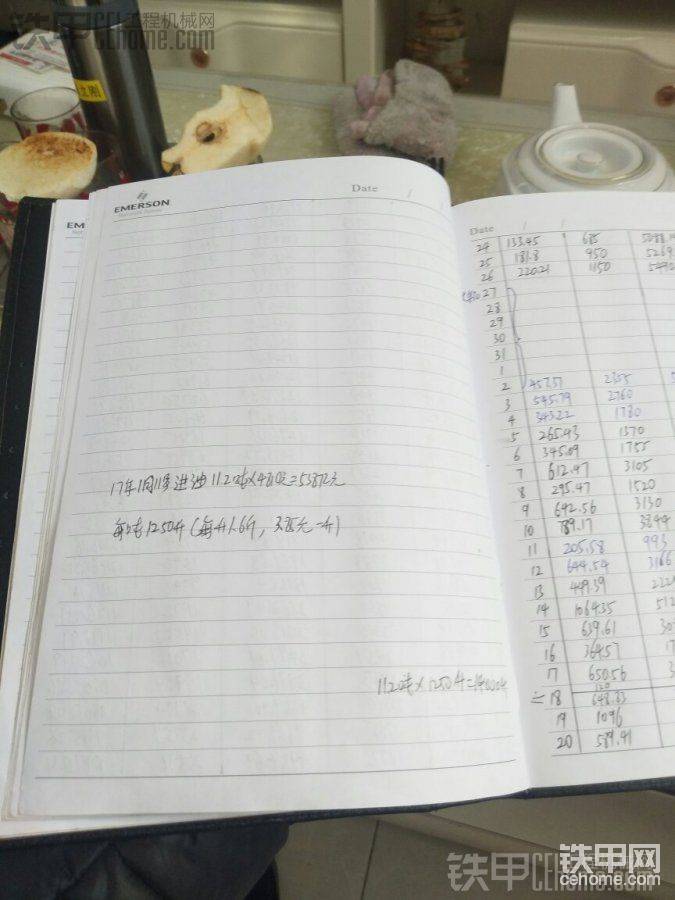 铁甲工程机械网
CEhome.com
立刚
EMERSON
Date / /
17年1月11号进油11.2吨×4810元=53872元
每吨1250升(每升1.6斤, 3.85元一升)
11.2吨×1250升=14000升
EM
Date / /
24 133.45 685
25 181.8 950
26 220.21 1150
27
28
29
30
31
1
2 457.57 2355
3 545.79 2760
4 343.22 1780
5 265.43 1370
6 345.09 1755
7 612.47 3105
8 295.47 1520
9 642.56 3130
10 789.17 3844
11 205.58 993
12 644.54 3166
13 449.39
14 1064.35
15 639.61
16 364.57
17 650.56
120
二 18 648.83
19 1096
20 589.91
铁甲网
cehome.com
铁甲CEhome.com